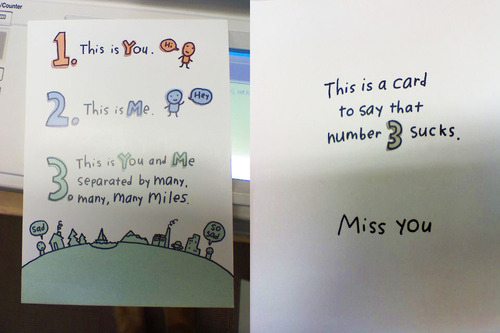 /Counter
1. This is You.
Hi
2. This is Me.
Hey
3. This is You and Me
separated by many,
many, many miles.
sad
so
sad
This is a card
to say that
number 3 sucks.
Miss you